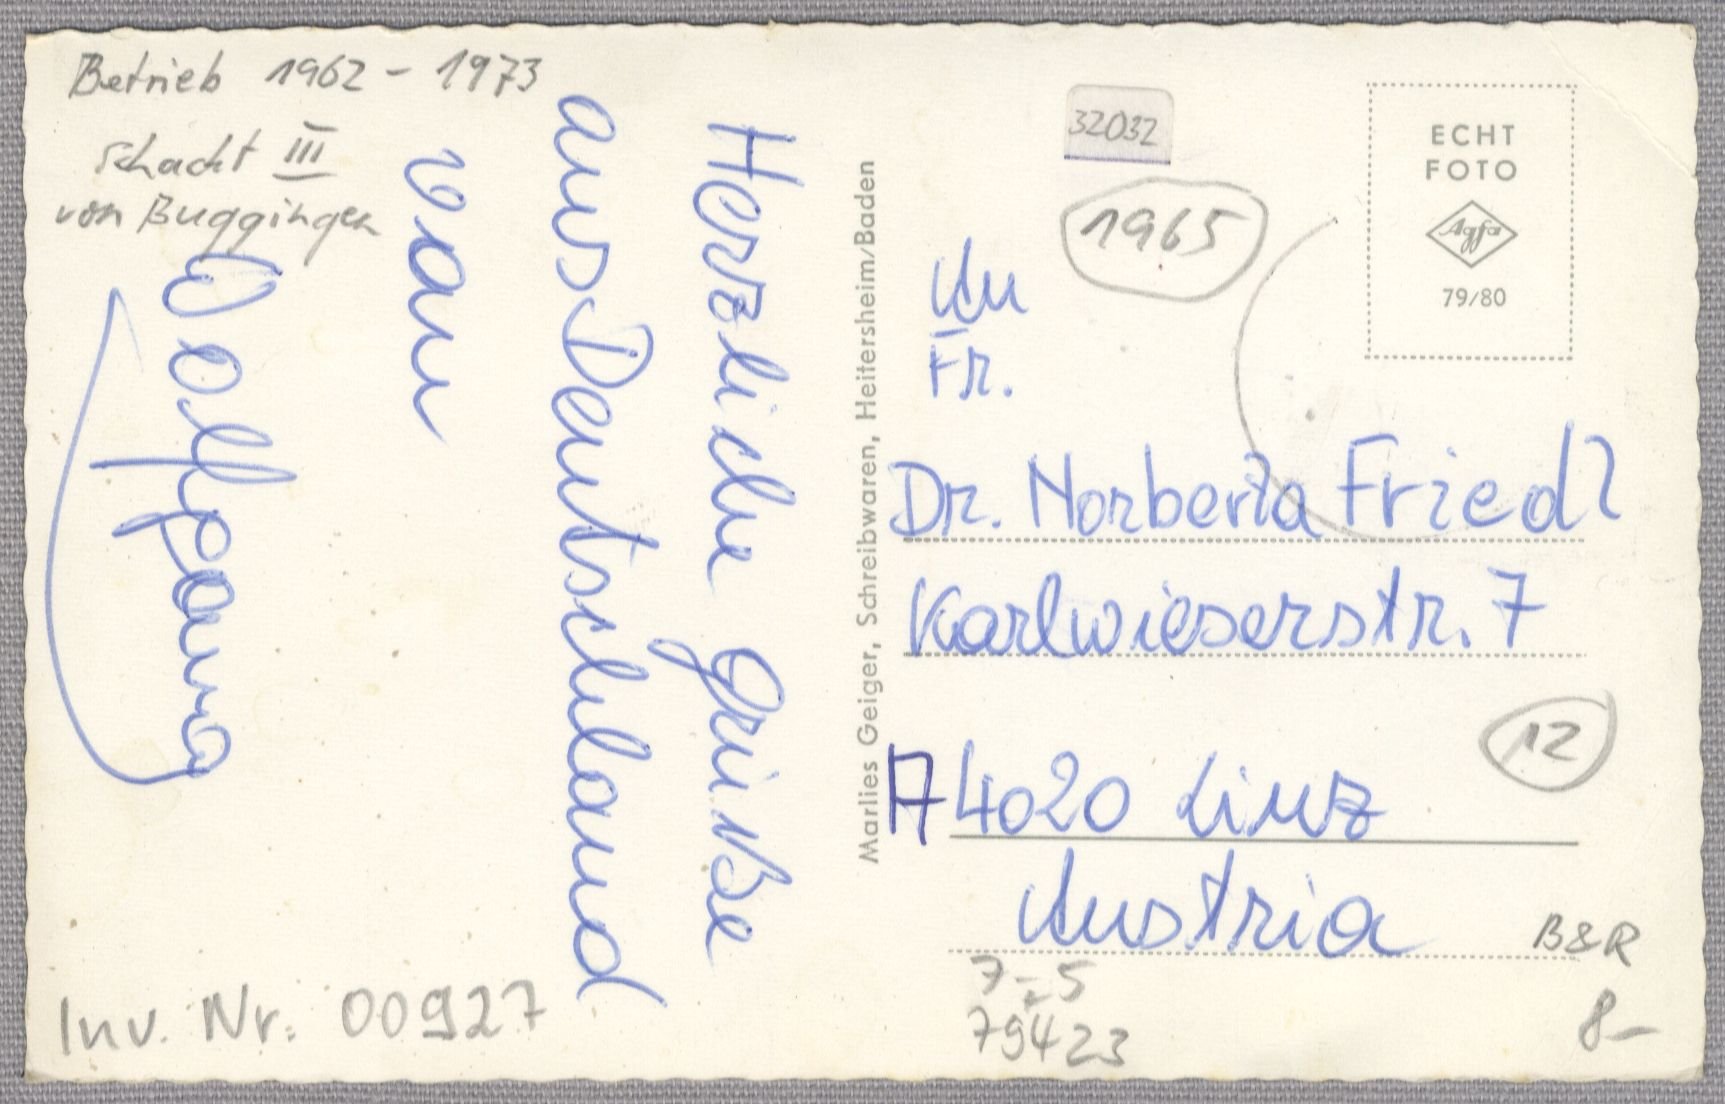 Betrieb 1962 - 1973
Schacht III
von Buggingen
Herzliche Grüße
aus Deutschland
von
Wolfgang
Inv. Nr. 00927
Marlies Geiger, Schreibwaren, Heitersheim/Baden
32032
1965
ECHT
FOTO
Agfa
79/80
An
Fr.
Dr. Norberta Friedl
Karlwieserstr. 7
12
A 4020 Linz
Austria
B&R
7-5
79423
8-